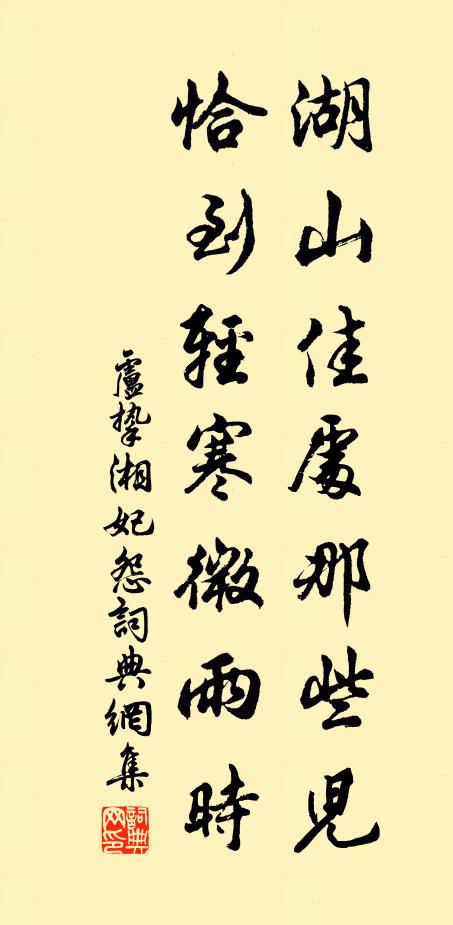 湖山佳處那些兒
恰到輕寒微雨時
盧摯湘妃怨詞典網集
詞典網印